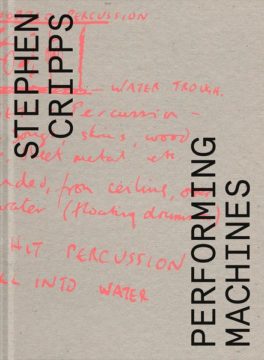 STEPHEN
CRIPPS
PERFORMING
MACHINES
PERCUSSION
WATER TROUGH.
Percussion -
skins, wood
sheet metal etc
from ceiling, over
water (floating drums)
HIT PERCUSSION
INTO WATER